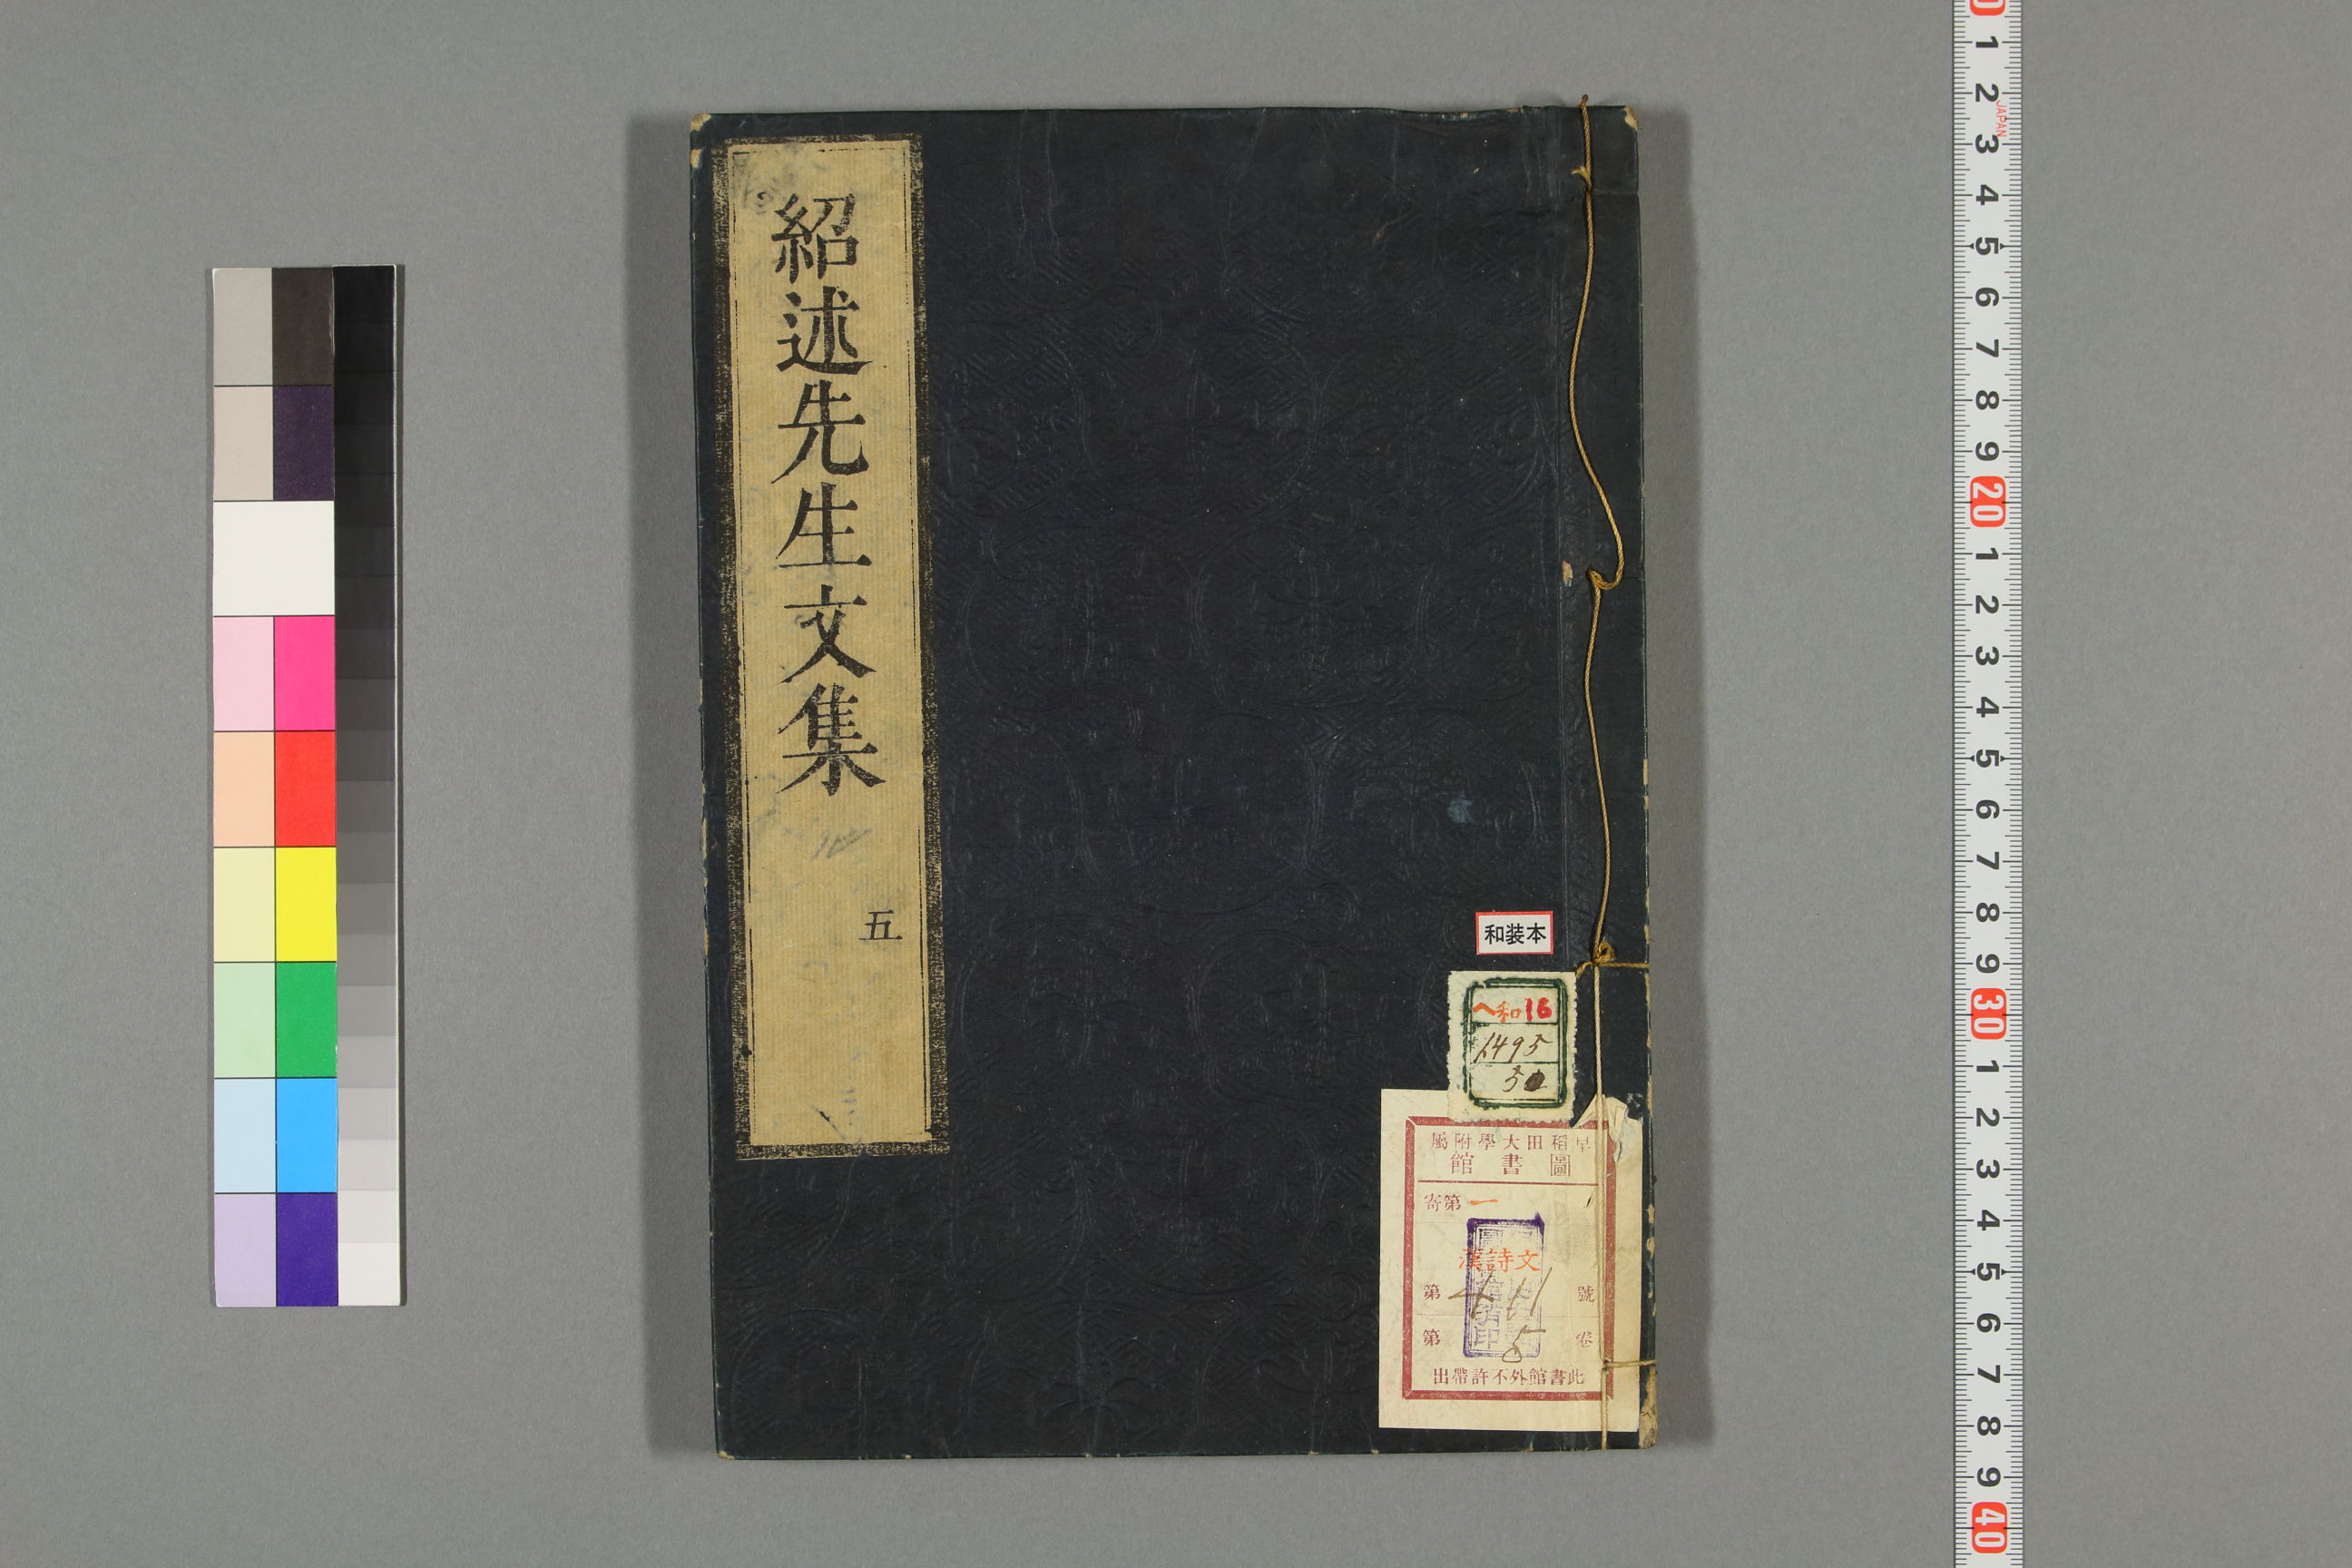 紹述先生文集
五
和装本
ヘ和16
1495
5
早稲田大學附屬
圖書館
寄第一
漢詩文
第 411 號
第 5 卷
此書館外不許帶出
0
1
2
JAPAN
3
4
5
6
7
8
9
20
1
2
3
4
5
6
7
8
9
30
1
2
3
4
5
6
7
8
9
40